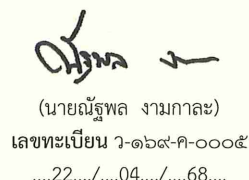 ณัฐพล
(นายณัฐพล งามกาละ)
เลขทะเบียน ว-๑๖๙-ค-๐๐๐๕
....22..../....04..../....68....